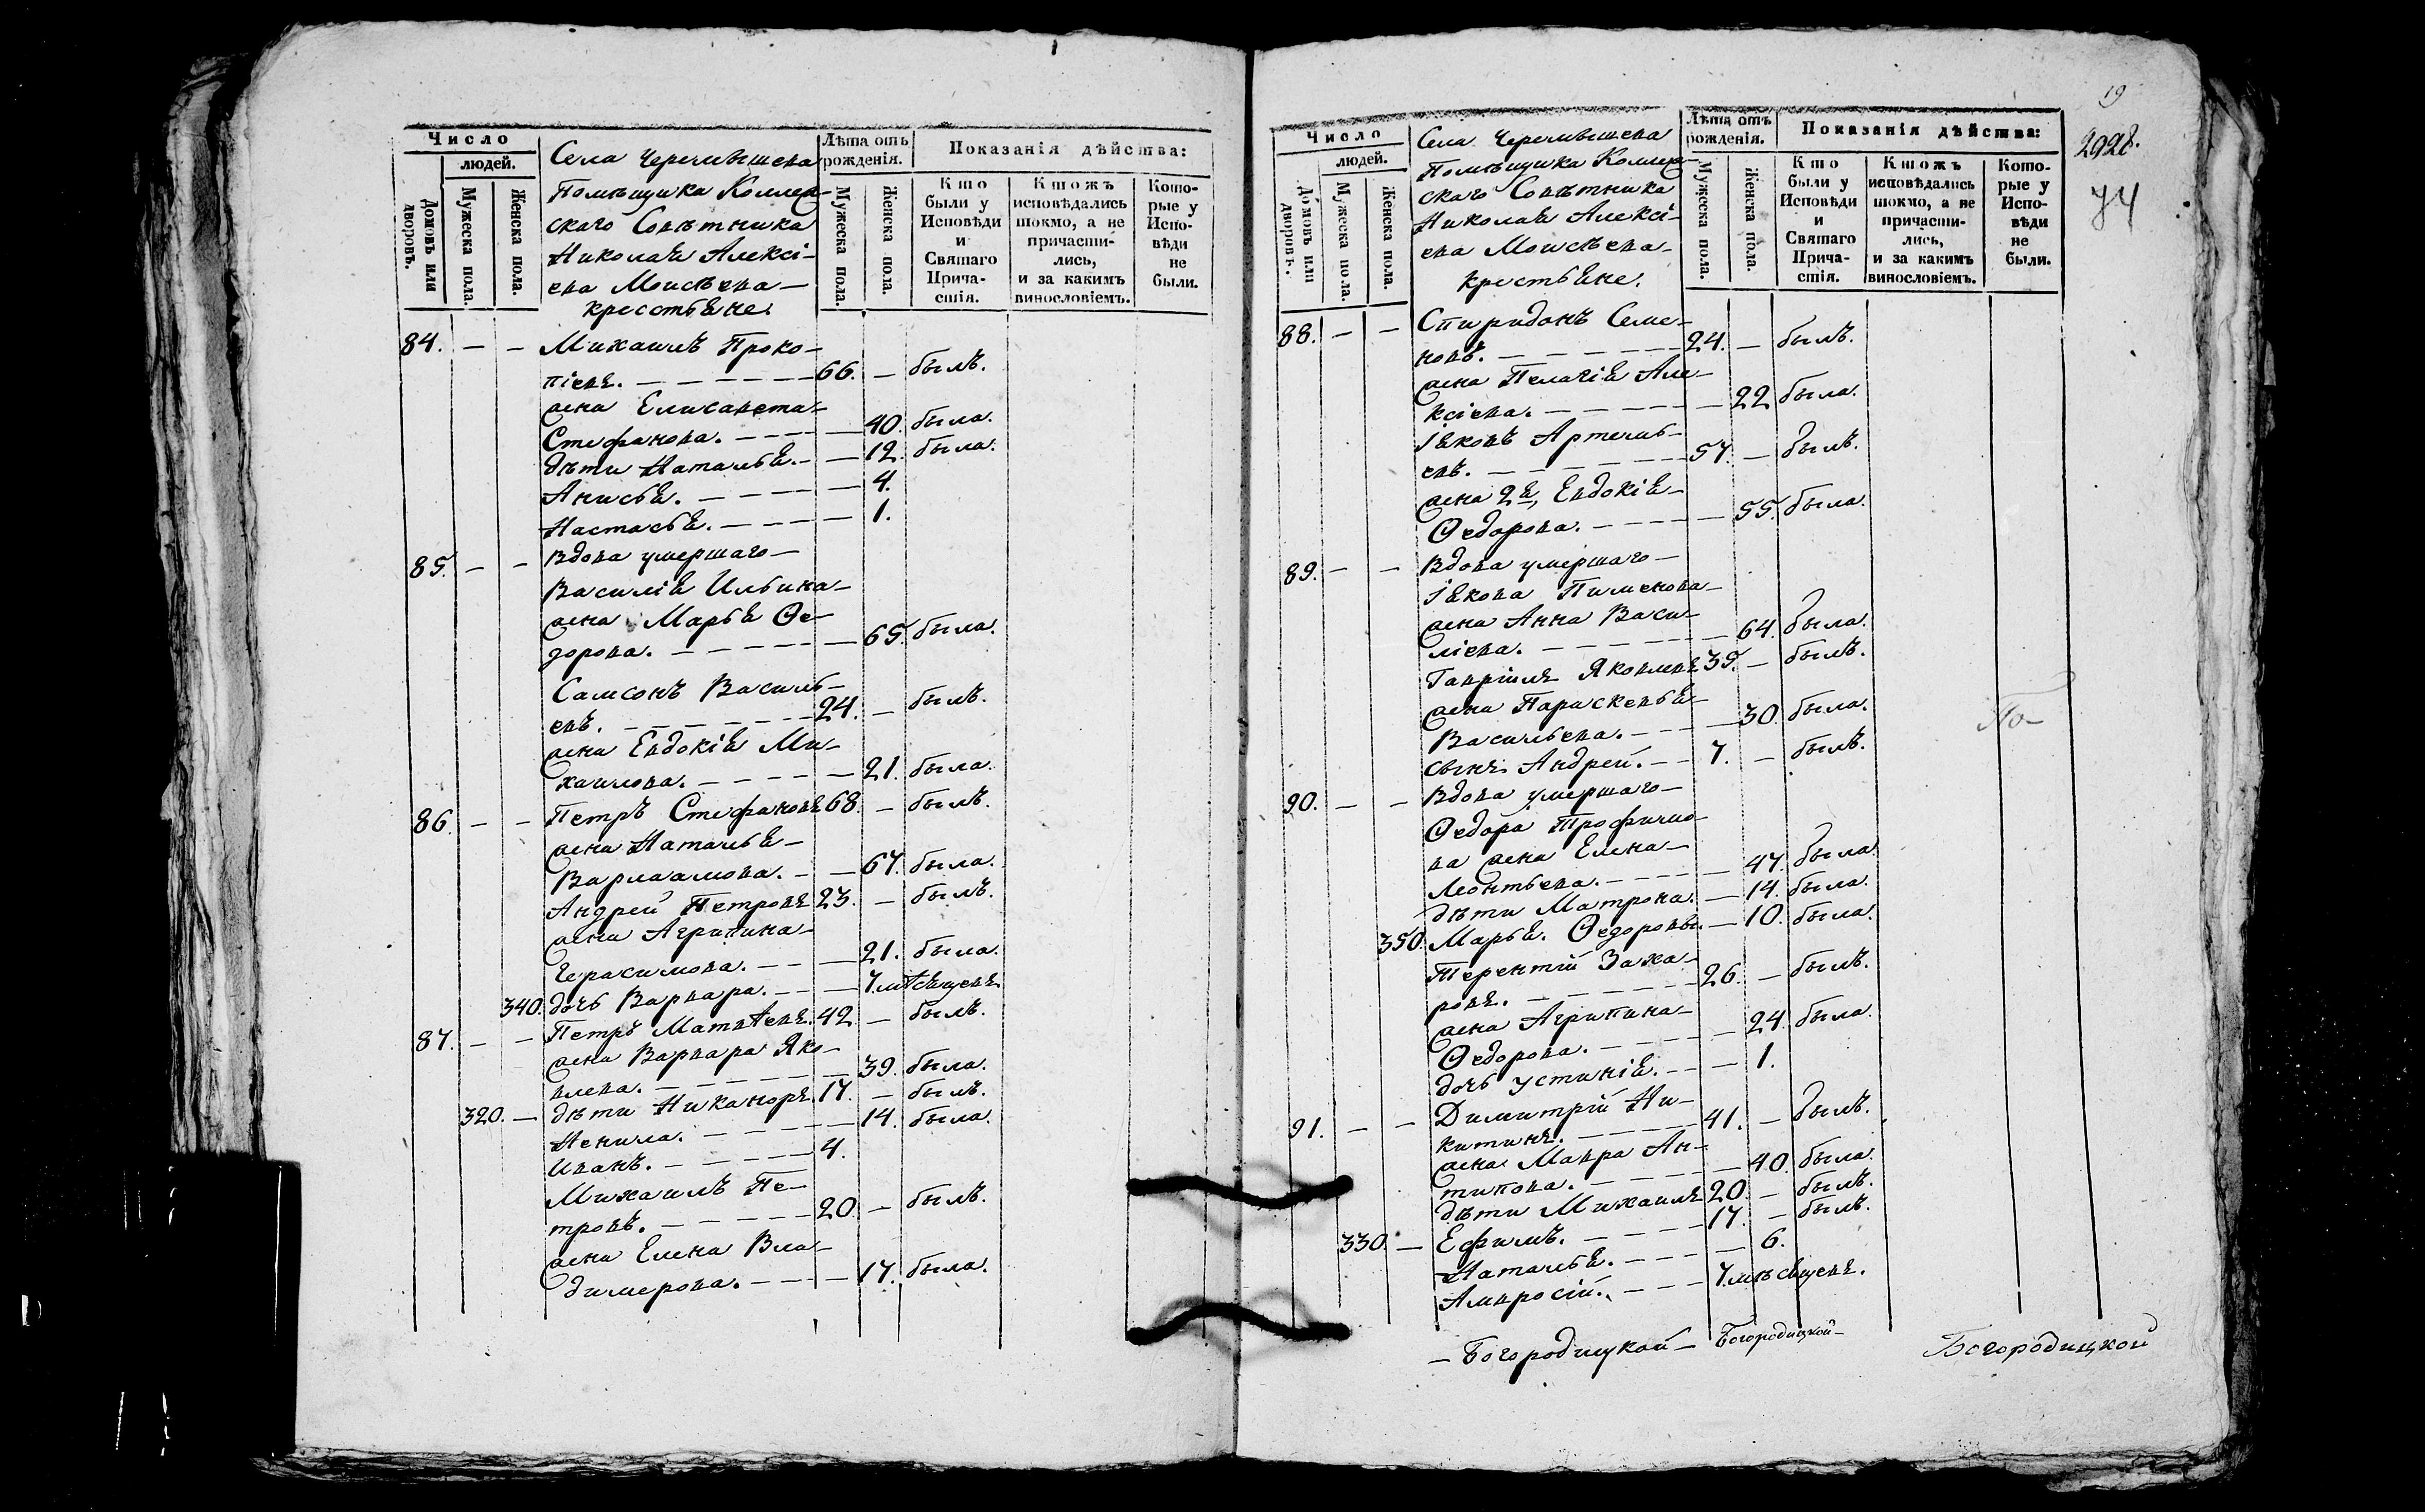 Число
людей.
Домовъ или дворовъ.
Мужеска пола.
Женска пола.
Села Черемышева
Помѣщика Коллеж-
скаго Совѣтника
Николая Алексі-
ева Моисѣева
крестьяне.
Лѣта отъ рожденія.
Мужеска пола.
Женска пола.
Показанія дѣйства:
Кто были у Исповѣди и Святаго Причастія.
Ктожъ исповѣдались токмо, а не причастились, и за какимъ винословіемъ.
Которые у Исповѣди не были.
84. — — Михаилъ Проко-
піевъ. — 66. — былъ.
жена Елисавета
Стефанова. — 40. была.
дѣти Наталья. — 12. была.
Анисья. — 4.
Настасья. — 1.
85. — — Вдова умершаго
Василія Ильина
жена Марья Ѳе-
дорова. — 65. была.
Самсонъ Василь-
евъ. — 24. — былъ.
жена Евдокія Ми-
хаилова. — 21. была.
86. — — Петръ Стефановъ 68. — былъ.
жена Наталья
Варлаамова. — 67. была.
Андрей Петровъ 23. — былъ.
жена Агрипина
Герасимова. — 21. была.
340. дочь Варвара. — 7. мѣсяцевъ
87. — — Петръ Матвѣевъ. 42 — былъ.
жена Варвара Яко-
влева. — 39. была.
320. — дѣти Никаноръ. 17. — былъ.
Ненила. — 14. была.
Иванъ. — 4.
Михаилъ Пе-
тровъ. — 20. — былъ.
жена Елена Вла-
димерова. — 17. была.
19
2928.
74
Число
людей.
Домовъ или дворовъ.
Мужеска пола.
Женска пола.
Села Черемышева
Помѣщика Коллеж-
скаго Совѣтника
Николая Алексі-
ева Моисѣева
крестьяне.
Лѣта отъ рожденія.
Мужеска пола.
Женска пола.
Показанія дѣйства:
Кто были у Исповѣди и Святаго Причастія.
Ктожъ исповѣдались токмо, а не причастились, и за какимъ винословіемъ.
Которые у Исповѣди не были.
88. — — Спиридонъ Семе-
новъ. — 24. — былъ.
жена Пелагія Але-
ксіева. — 22 была.
Іяковъ Артемь-
евъ. — 57. — былъ.
жена 2я, Евдокія
Ѳедорова. — 55. была.
89. — — Вдова умершаго
Іякова Пименова
жена Анна Васи-
ліева. — 64. была.
Гавріилъ Яковлевъ 35. — былъ.
жена Парискевья
Васильева. — 30. была.
сынъ Андрей. — 7. — былъ.
По-
90. — — Вдова умершаго
Ѳедора Трофимо-
ва жена Елена
Леонтьева. — 47. была
дѣти Матрона. — 14. была.
350. Марья. Ѳедоровы. — 10. была.
Терентій Заха-
ровъ. — 26. — былъ.
жена Агрипина
Ѳедорова. — 24. была.
дочь Устинія. — 1.
91. — — Димитрій Ни-
китинъ. — 41. — былъ.
жена Мавра Ан-
типова. — 40. была.
дѣти Михаилъ 20. — былъ.
330. — Ефимъ. — 17. — былъ.
Наталья. — 6.
Амвросій. — 7. мѣсяцевъ.
— Богородицкой — Богородицкой — Богородицкой